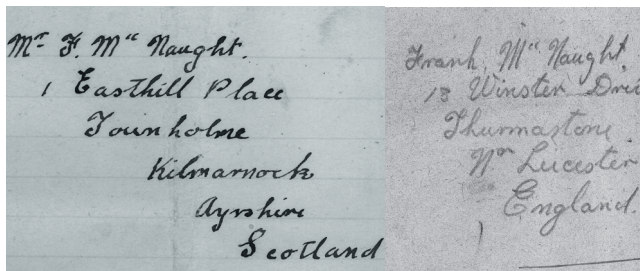 Mr F. Mc Naught.
1 Easthill Place
Townholme
Kilmarnock
Ayrshire
Scotland
Frank Mc Naught.
13 Winster Driv
Thurmastone
Nr Leicester
England.